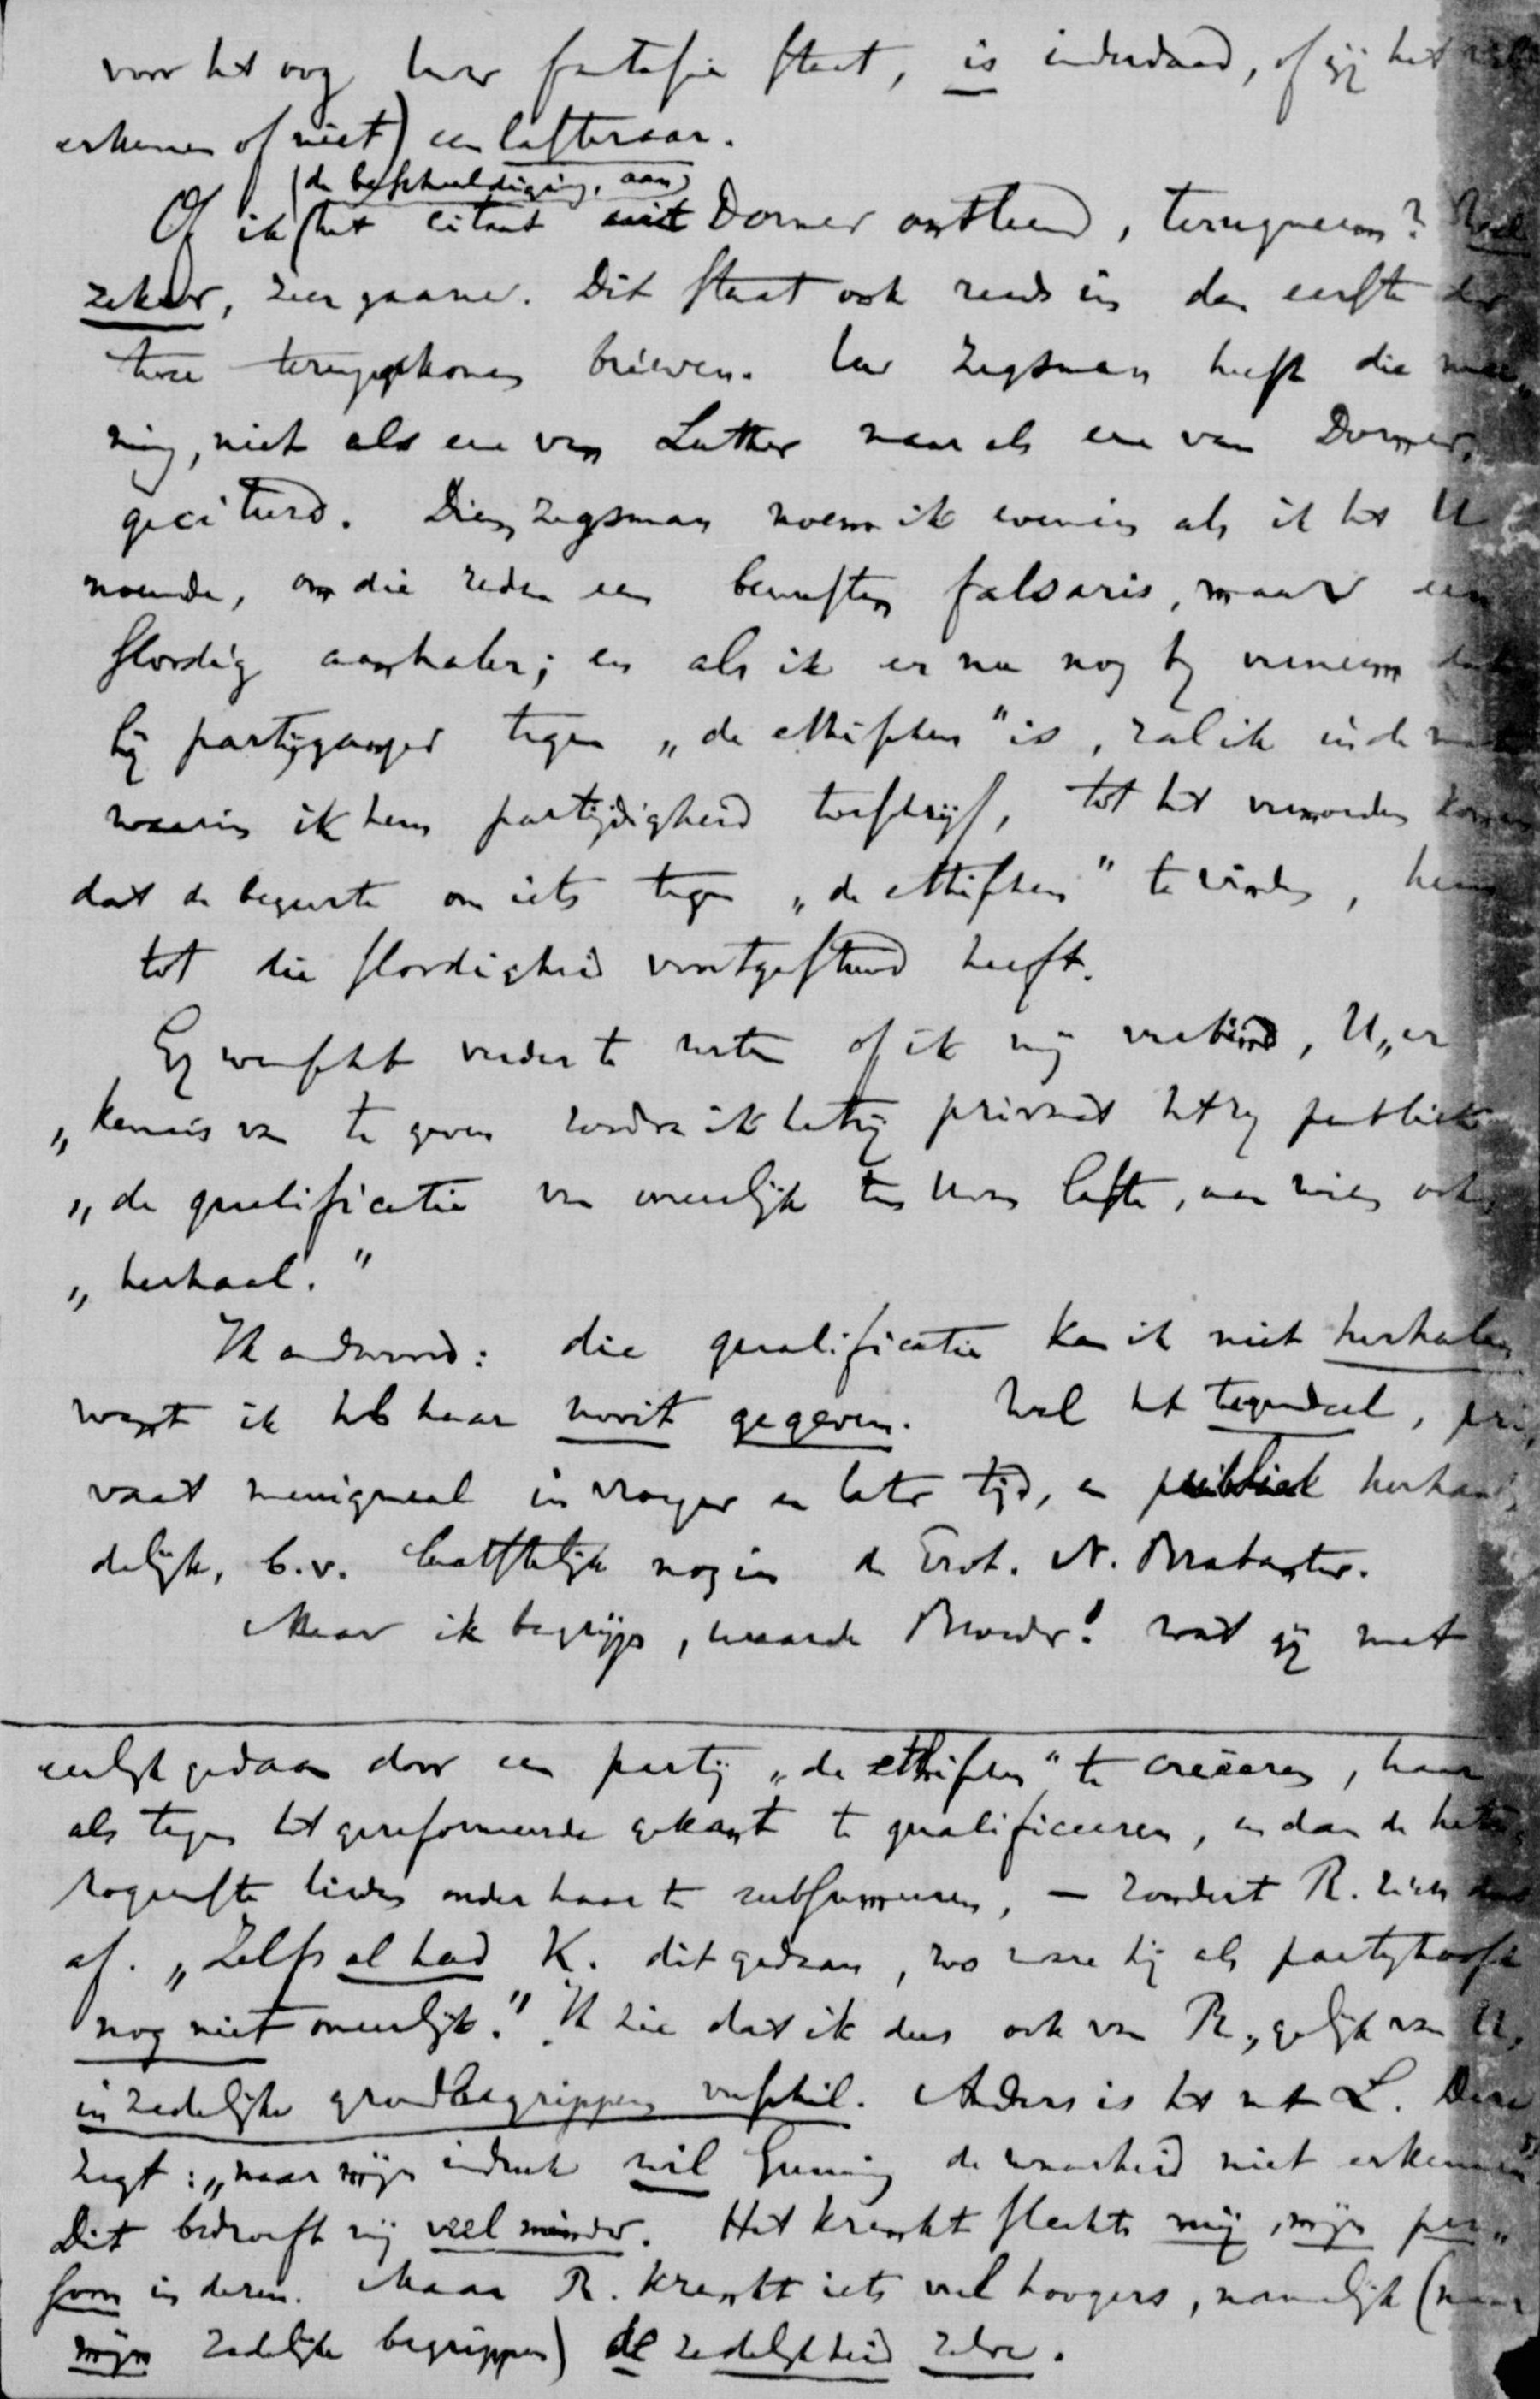 voor het oog uwer fantasie staat, is inderdaad, of gij het
erkennen of niet) een lasteraar.
(de beschuldiging, aan)
Of ik het citaat uit Dorner ontleend, terugneem?
zeker, zeer gaarne. Dit staat ook reeds in den eersten der
twee teruggekomen brieven. Uw zegsman heeft die mee„
ning, niet als een van Luther maar als een van Dorner,
geciteerd. Dien zegsman noem ik evenmin als ik het U
noemde, om die reden een bewusten falsaris, maar een
slordig aanhaler; en als ik er nu nog bij verneem dat
hij partijganger tegen „de ethischen" is, zal ik in de mate
waarin ik hem partijdigheid toeschrijf, tot het vermoeden komen
dat de begeerte om iets tegen „de ethischen" te vinden, hem
tot die slordigheid voortgestuwd heeft.
Gij wenscht verder te weten of ik mij verbind, U „er
„kennis van te geven zoodra ik hetzij privaat hetzij publiek
„de qualificatie van oneerlijk ten Uwen laste, aan wien ook,
„herhaal."
Ik antwoord: die qualificatie kan ik niet herhalen
want ik heb haar nooit gegeven. Wel het tegendeel, pri„
vaat menigmaal in vroeger en later tijd, en publiek herhaal„
delijk, b.v. laatstelijk nog in de Prot. N. Brabanter.
Maar ik begrijp, waarde Broeder! wat gij met
eerlijk gedaan door een partij „de ethischen" te creëeren, haar
als tegen het gereformeerde gekant te qualificeeren, en dan de hete„
rogeenste lieden onder haar te subsumeeren, — zondert R. zich dus
af. „Zelfs al had K. dit gedaan, zoo ware hij als partijhoofd
nog niet oneerlijk." Ik zie dat ik dus ook van R., gelijk van U,
in zedelijke grondbegrippen verschil. Anders is het met L. Deze
zegt: „naar mijn indruk wil Gunning de waarheid niet erkennen"
Dit bedroeft mij veel minder. Het krenkt slechts mij, mijn per„
soon in dezen. Maar R. krenkt iets veel hoogers, namelijk (naar
mijn zedelijke begrippen) de zedelijkheid zelve.